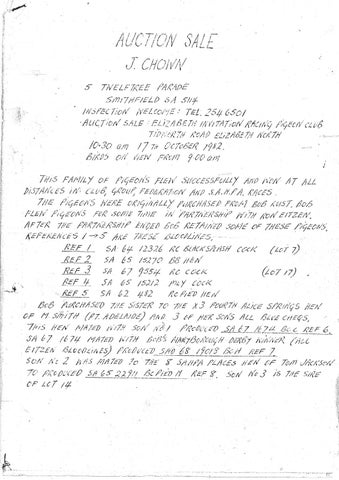 AUCTION SALE
J. CHOWN
5 TWELFTREE PARADE
SMITHFIELD SA 5114
INSPECTION WELCOME: TEL. 254 6501
AUCTION SALE: ELIZABETH INVITATION RACING PIGEON CLUB
TIDWORTH ROAD ELIZABETH NORTH
10-30 am 17th OCTOBER 1982.
BIRDS ON VIEW FROM 9.00 am
THIS FAMILY OF PIGEONS FLEW SUCCESSFULLY AND WON AT ALL
DISTANCES IN CLUB, GROUP, FEDERATION AND S.A.H.P.A. RACES.
THE PIGEONS WERE ORIGINALLY PURCHASED FROM BOB RUST. BOB
FLEW PIGEONS FOR SOME TIME IN PARTNERSHIP WITH RON EITZEN.
AFTER THE PARTNERSHIP ENDED BOB RETAINED SOME OF THESE PIGEONS,
REFERENCES 1 → 5 ARE THESE BLOODLINES,-
REF 1 SA 64 12326 RC BLACKSPLASH COCK (LOT 7)
REF 2 SA 65 15270 BB HEN
REF 3 SA 67 9554 RC COCK (LOT 17)
REF 4 SA 65 15212 PLY COCK
REF 5 SA 62 412 RC PIED HEN
BOB PURCHASED THE SISTER TO THE X3 FOURTH ALICE SPRINGS HEN
OF M. SMITH (PT. ADELAIDE) AND 3 OF HER SONS ALL BLUE CHEQS,
THIS HEN MATED WITH SON NO 1 PRODUCED SA 67 1674 BCC REF 6.
SA 67 1674 MATED WITH BOB'S MARYBOROUGH DERBY WINNER (ALL
EITZEN BLOODLINES) PRODUCED 68 19013 BCH REF 7.
SON NO 2 WAS MATED TO THE 8 SAHPA PLACES HEN OF TOM JACKSON
TO PRODUCED SA 65 22911 BC PIED H REF 8. SON NO 3 IS THE SIRE
OF LOT 14